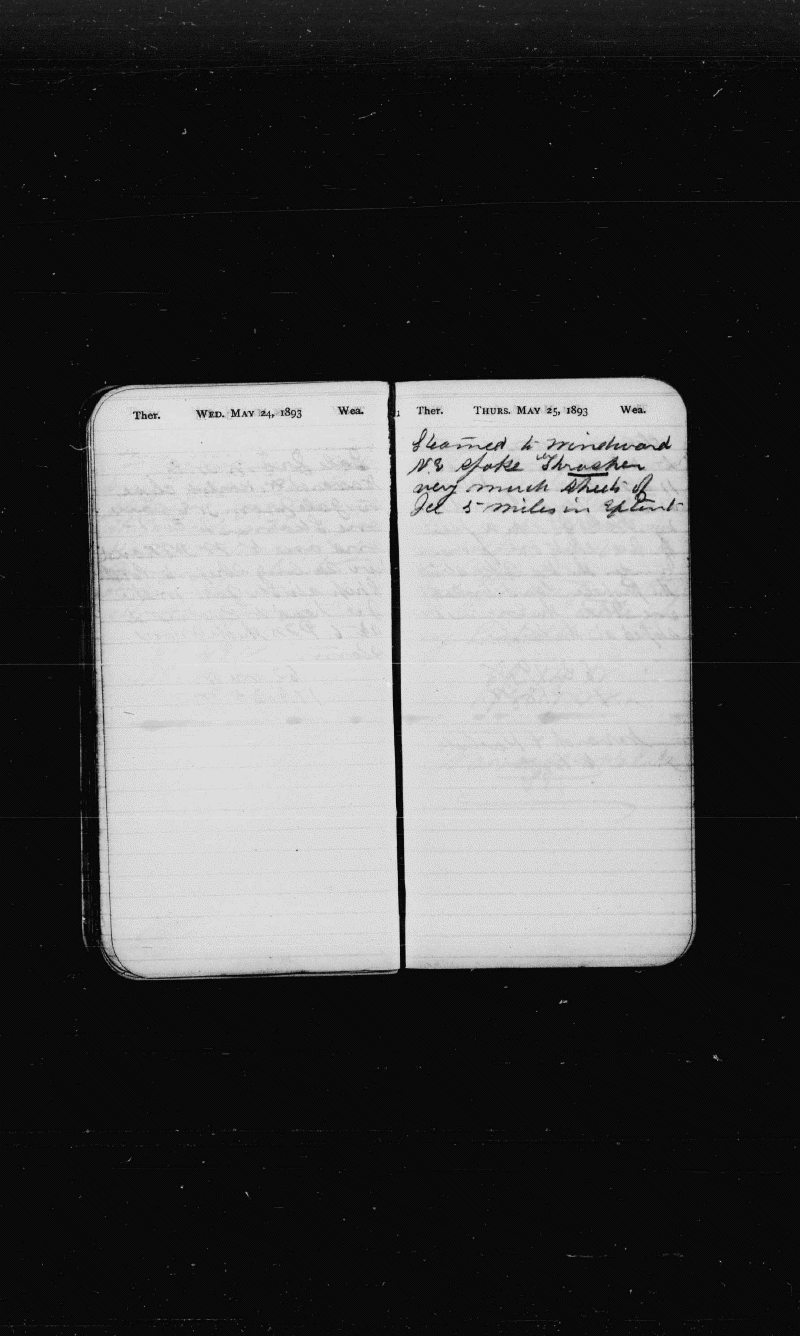 Ther. WED. MAY 24, 1893 Wea.
Ther. THURS. MAY 25, 1893 Wea.
Steamed to windward
N.E spoke Thrasher
very much sheets of
Ice 5 miles in Extent